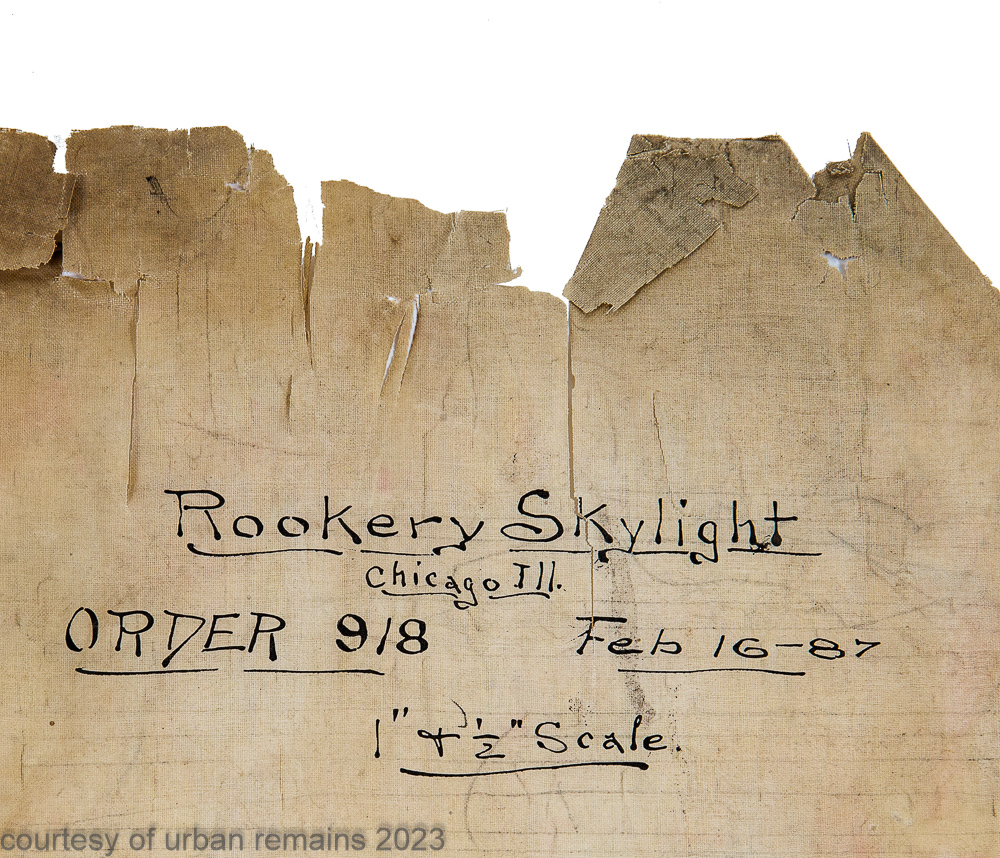 Rookery Skylight
Chicago Ill.
ORDER 918 Feb 16-87
1" & ½" Scale.
courtesy of urban remains 2023